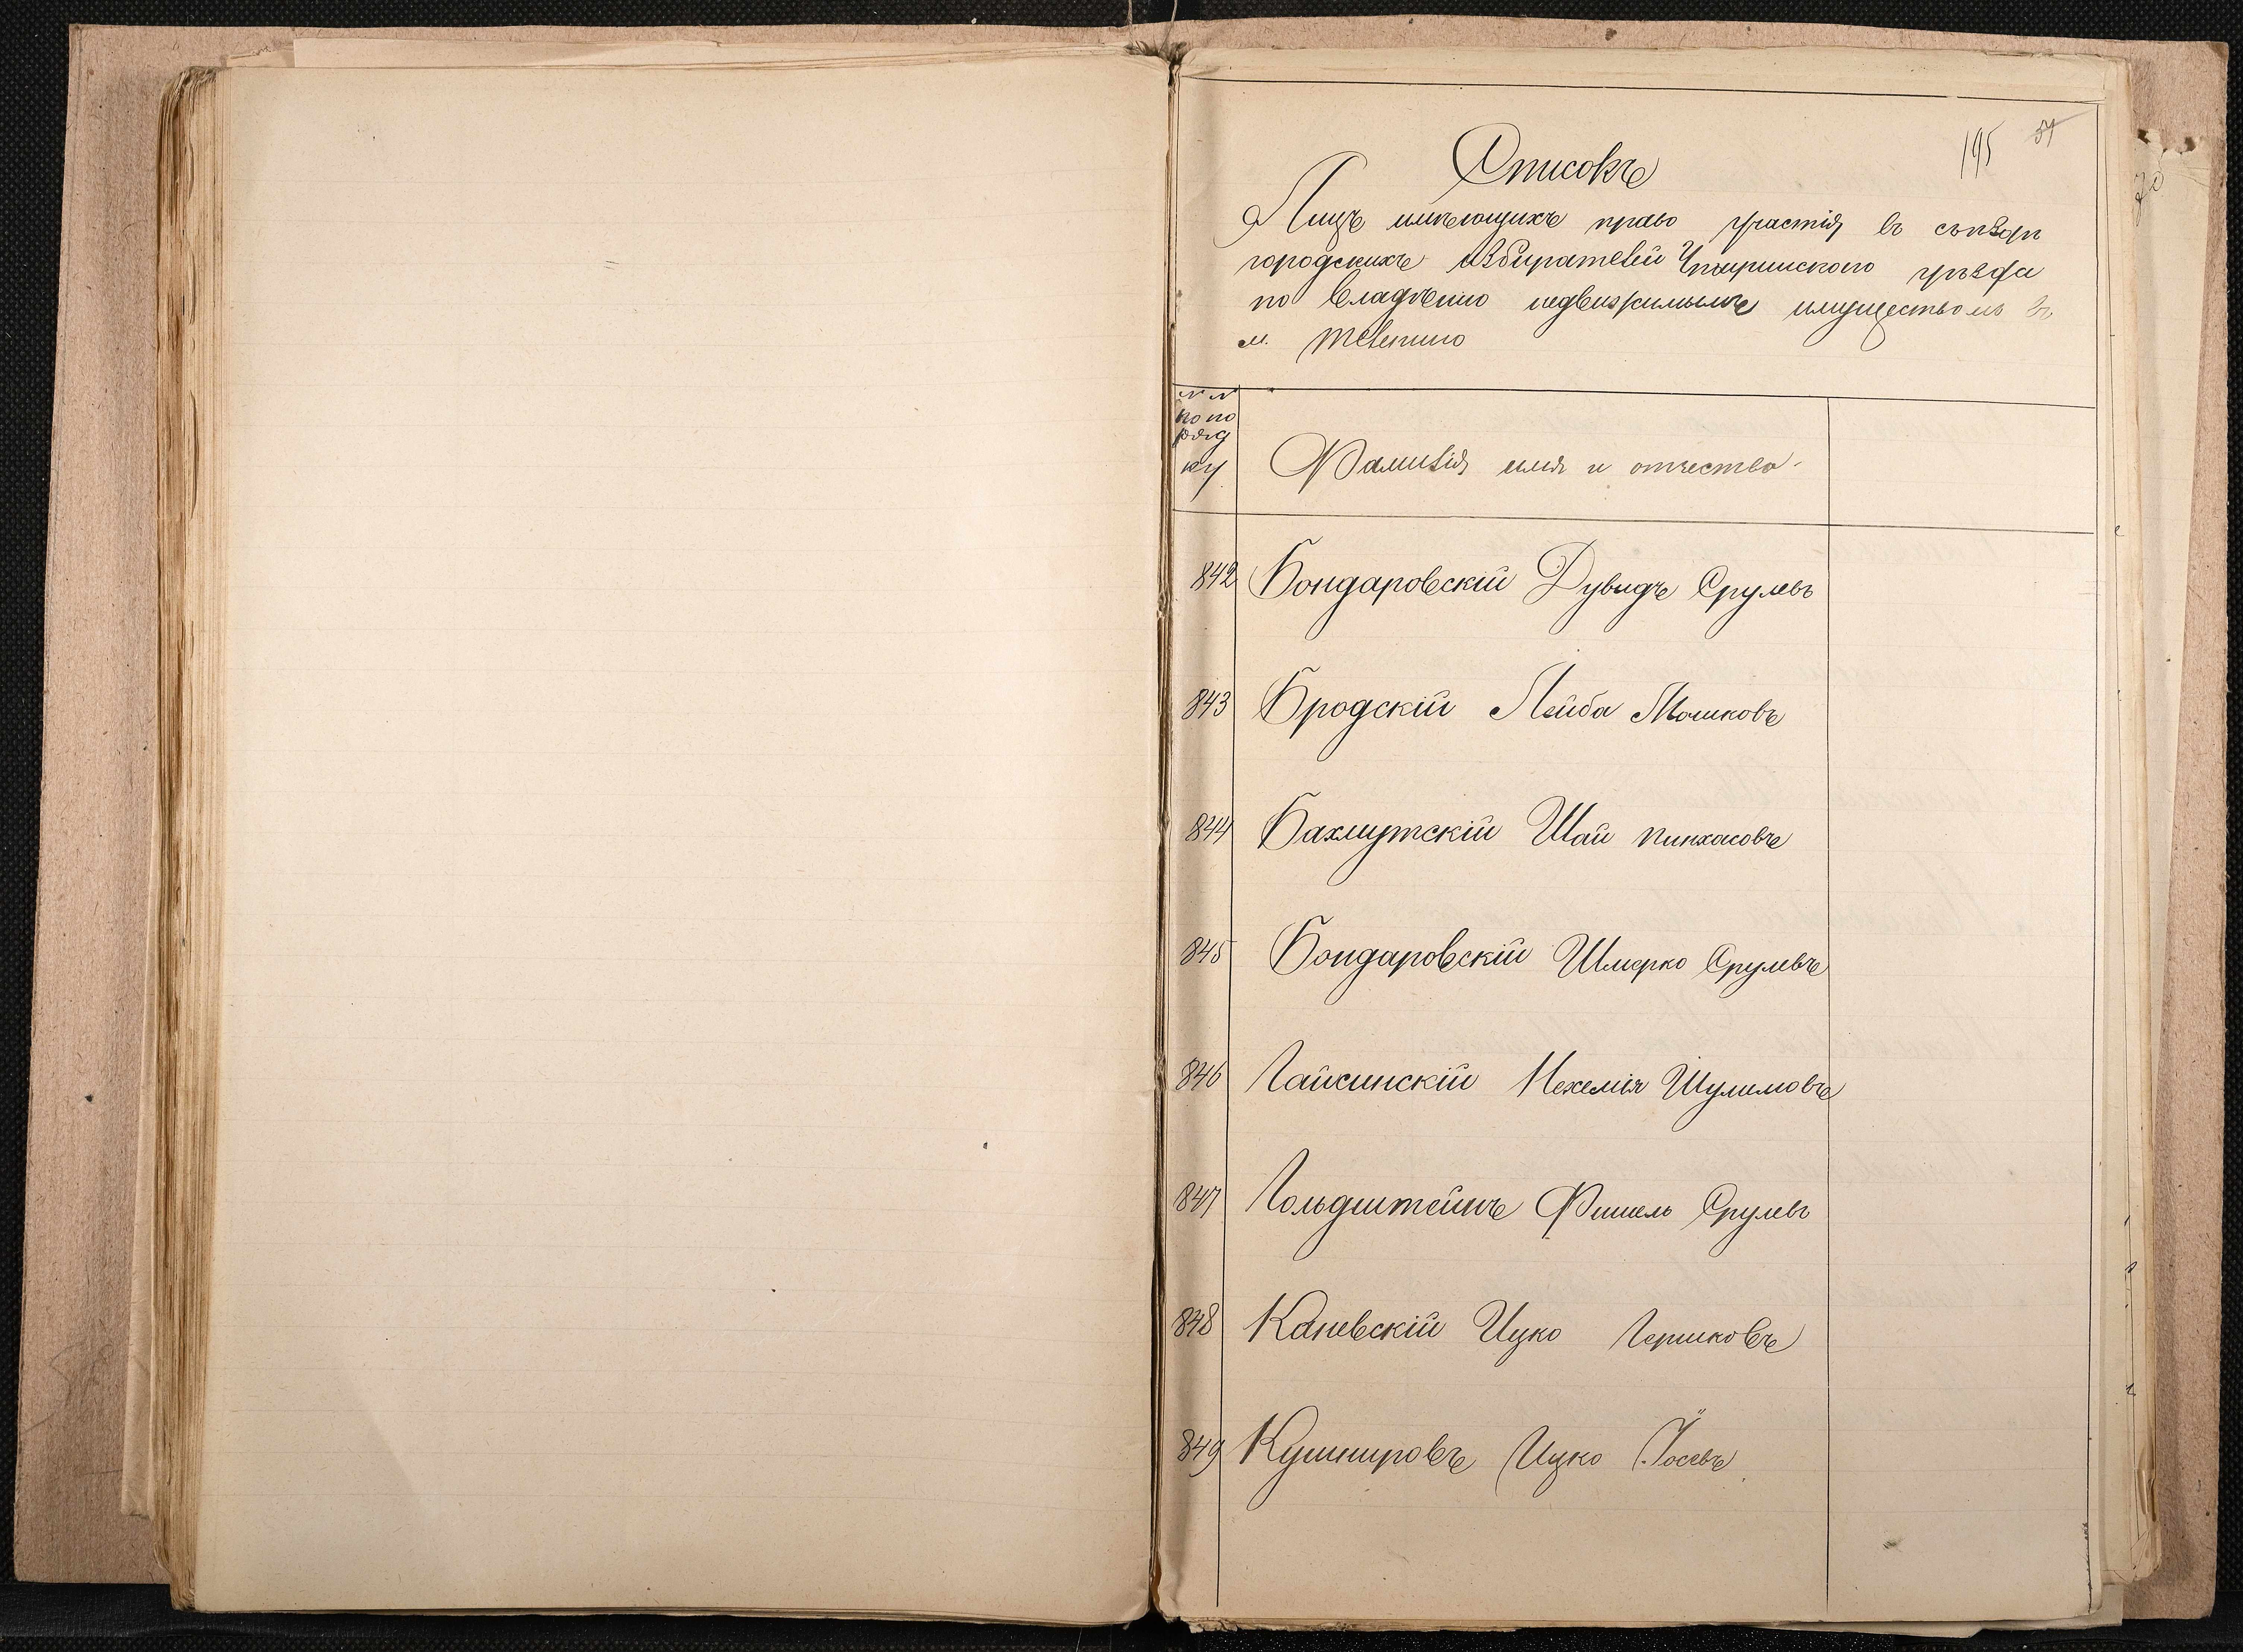 195 57
Списокъ
Лицъ имѣющихъ право участія въ съѣздѣ
городскихъ избирателей Чигиринского уѣзда
по владѣнію недвижимымъ имуществомъ въ
м. Телепино
№ №
по по
ряд
ку
Фамилія имя и отчество.
842 Бондаровскій Дувидъ Срулевъ
843 Бродскій Лейба Мошковъ
844 Бахмутскій Шай Пинхасовъ
845 Бондаровскій Шмерко Срулевъ
846 Гайсинскій Нехемія Шулимовъ
847 Гольдштейнъ Фишель Срулевъ
848 Каневскій Ицко Гершковъ
849 Кушнировъ Ицко Іосевъ